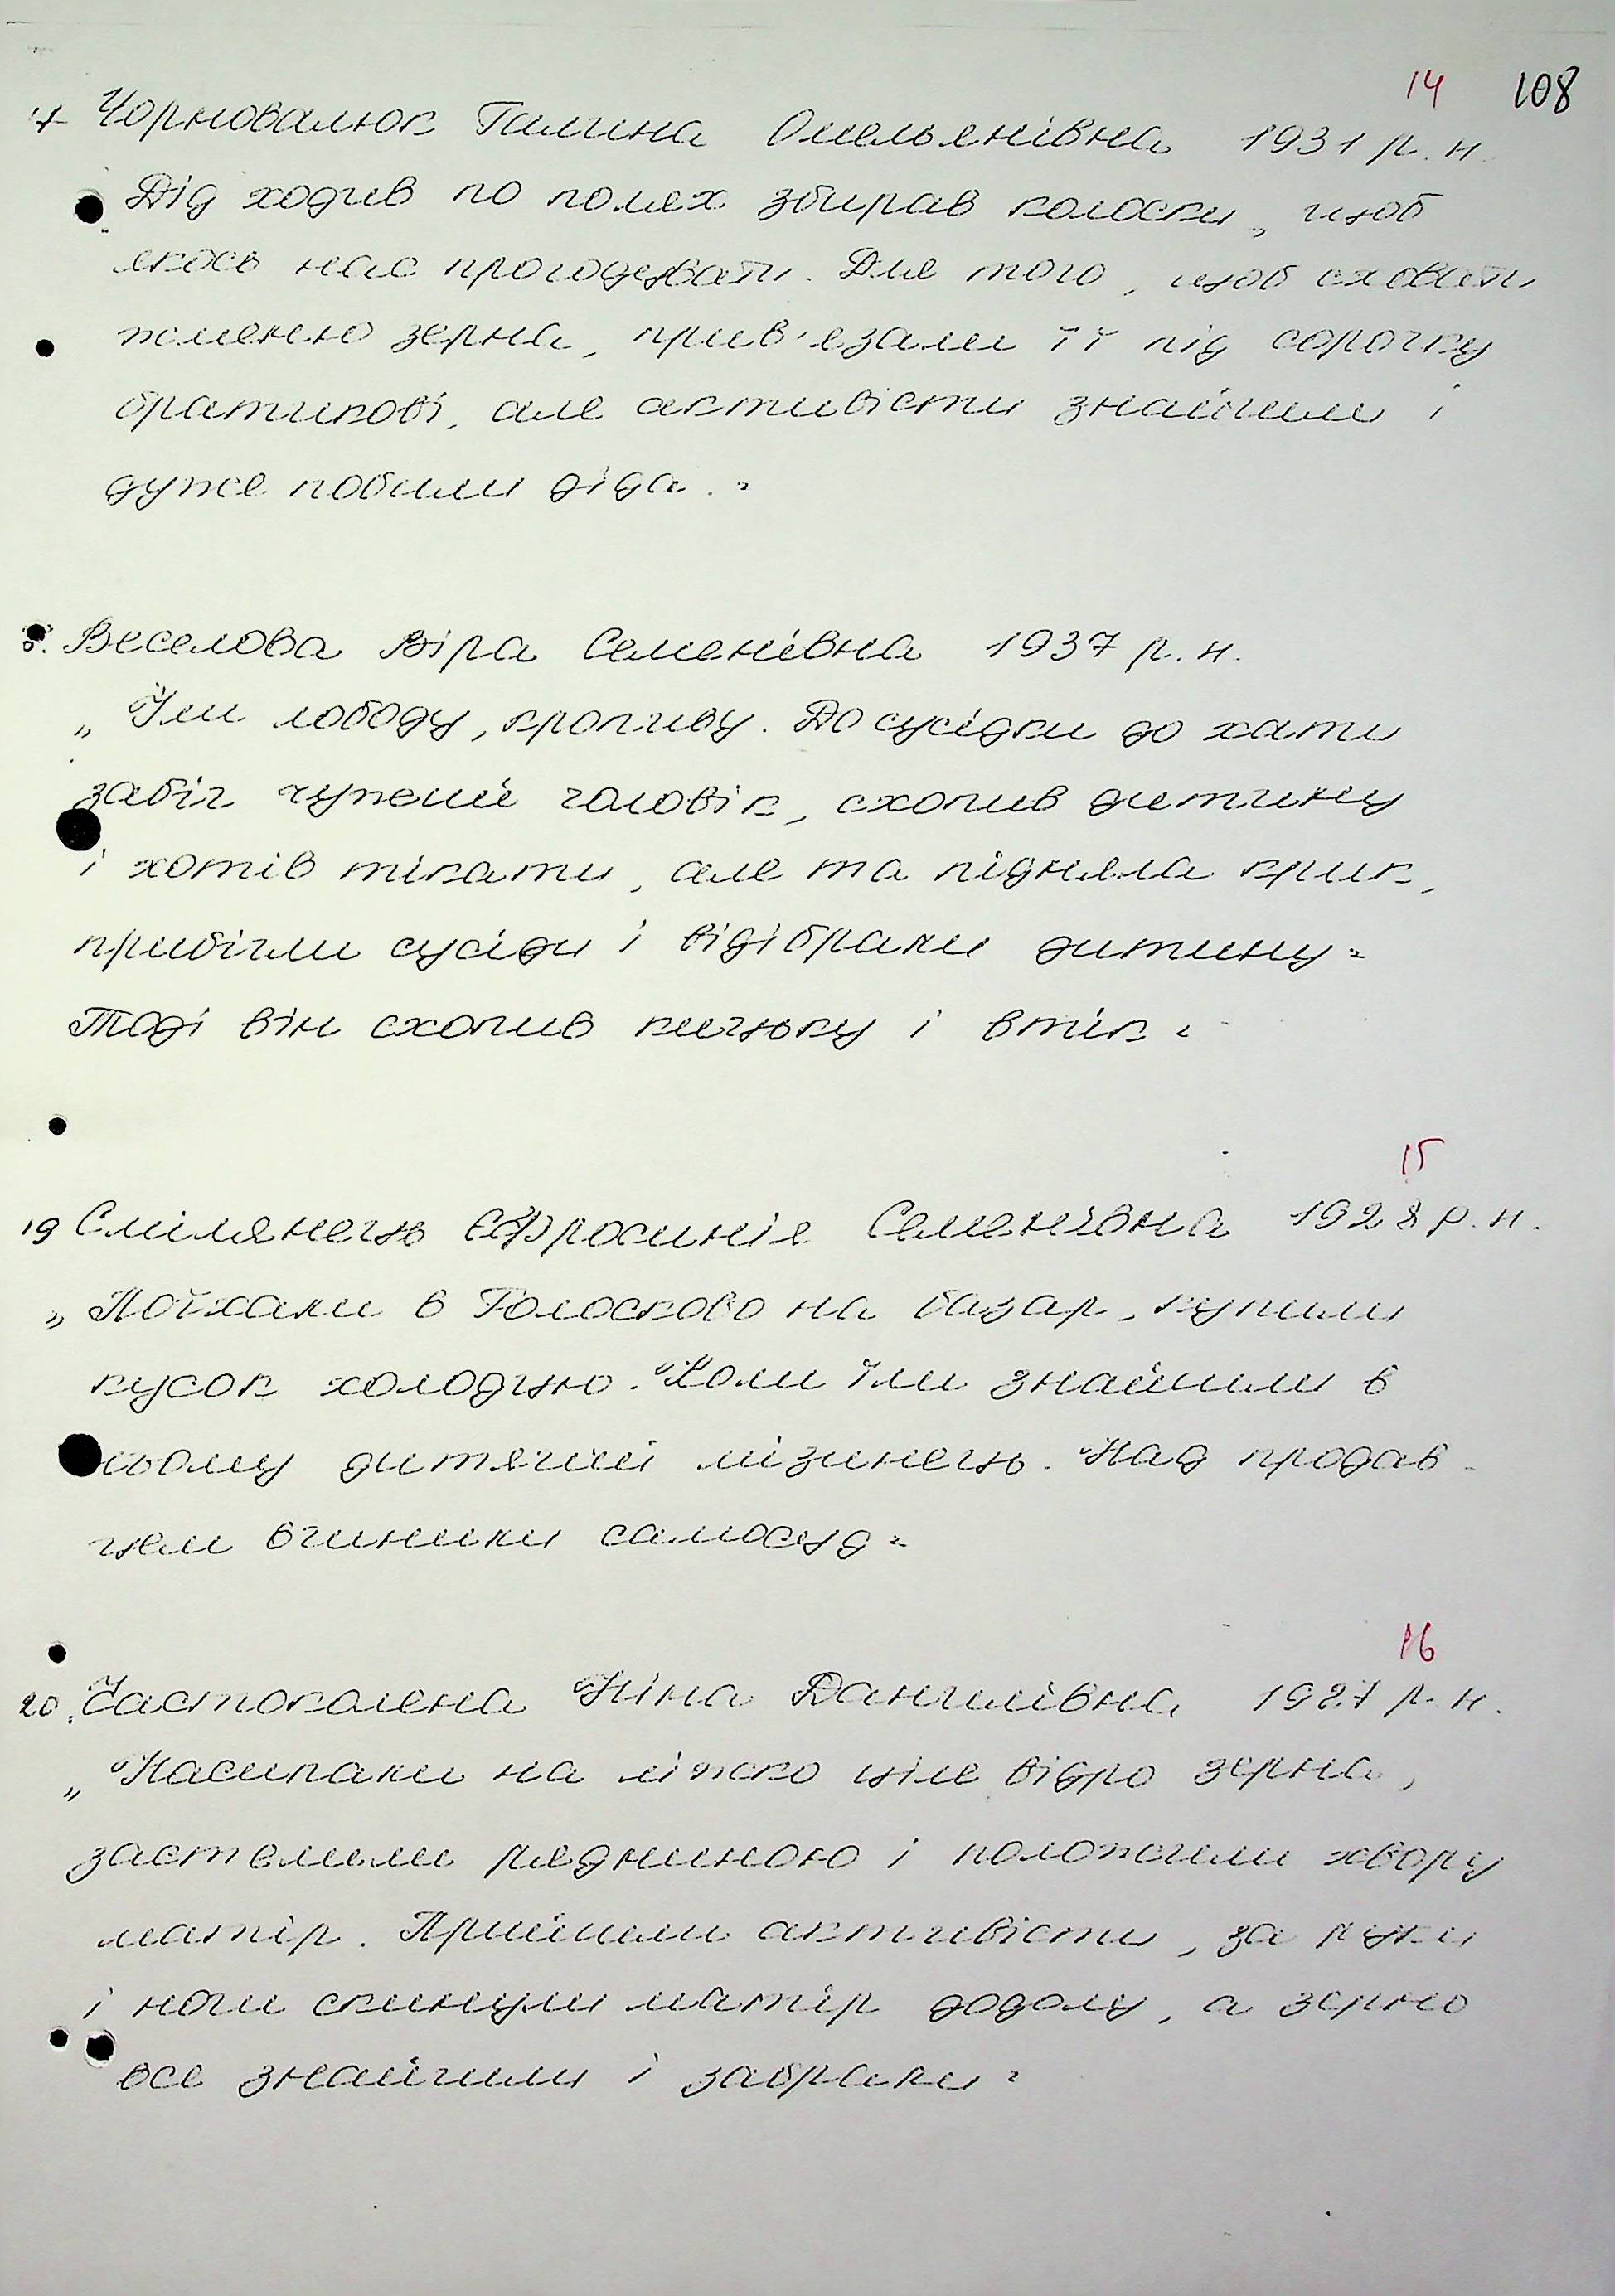 14 108
17 Чорновалюк Галина Омельянівна 1931 р.н.
Дід ходив по полях збирав колоски, щоб
якось нас прогодувати. Для того, щоб сховати
жменю зерна, прив'язали її під сорочку
братикові, але активісти знайшли і
дуже побили діда."
8. Веселова Віра Семенівна 1937 р.н.
„Їли лободу, кропиву. До сусідки до хати
забіг чужий чоловік, схопив дитину
і хотів тікати, але та підняла крик,
прибігли сусіди і відібрали дитину"
Тоді він схопив кицьку і втік"
15
19 Смілянець Єфросинія Семенівна 1928 р.н.
„Поїхали в Голосково на базар, купили
кусок холодцю. Коли їли знайшли в
ньому дитячий мізинець. Над продав-
цем вчинили самосуд"
16
20. Частоколена Ніна Данилівна 1927 р.н.
„Насипали на ліжко ціле відро зерна,
застелили рядниною і положили хвору
матір. Прийшли активісти, за руки
і ноги скинули матір додолу, а зерно
все знайшли і забрали"